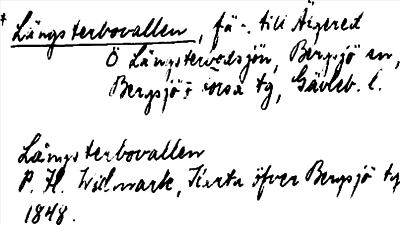 * Långsterbovallen, fä-. till Älgered
Ö Långstervadsjön, Bergsjö sn,
Bergsjö o. tg, Gävleb. l.
Långsterbovallen
P. H. Widmark, Karta öfver Bergsjö tg
1848.